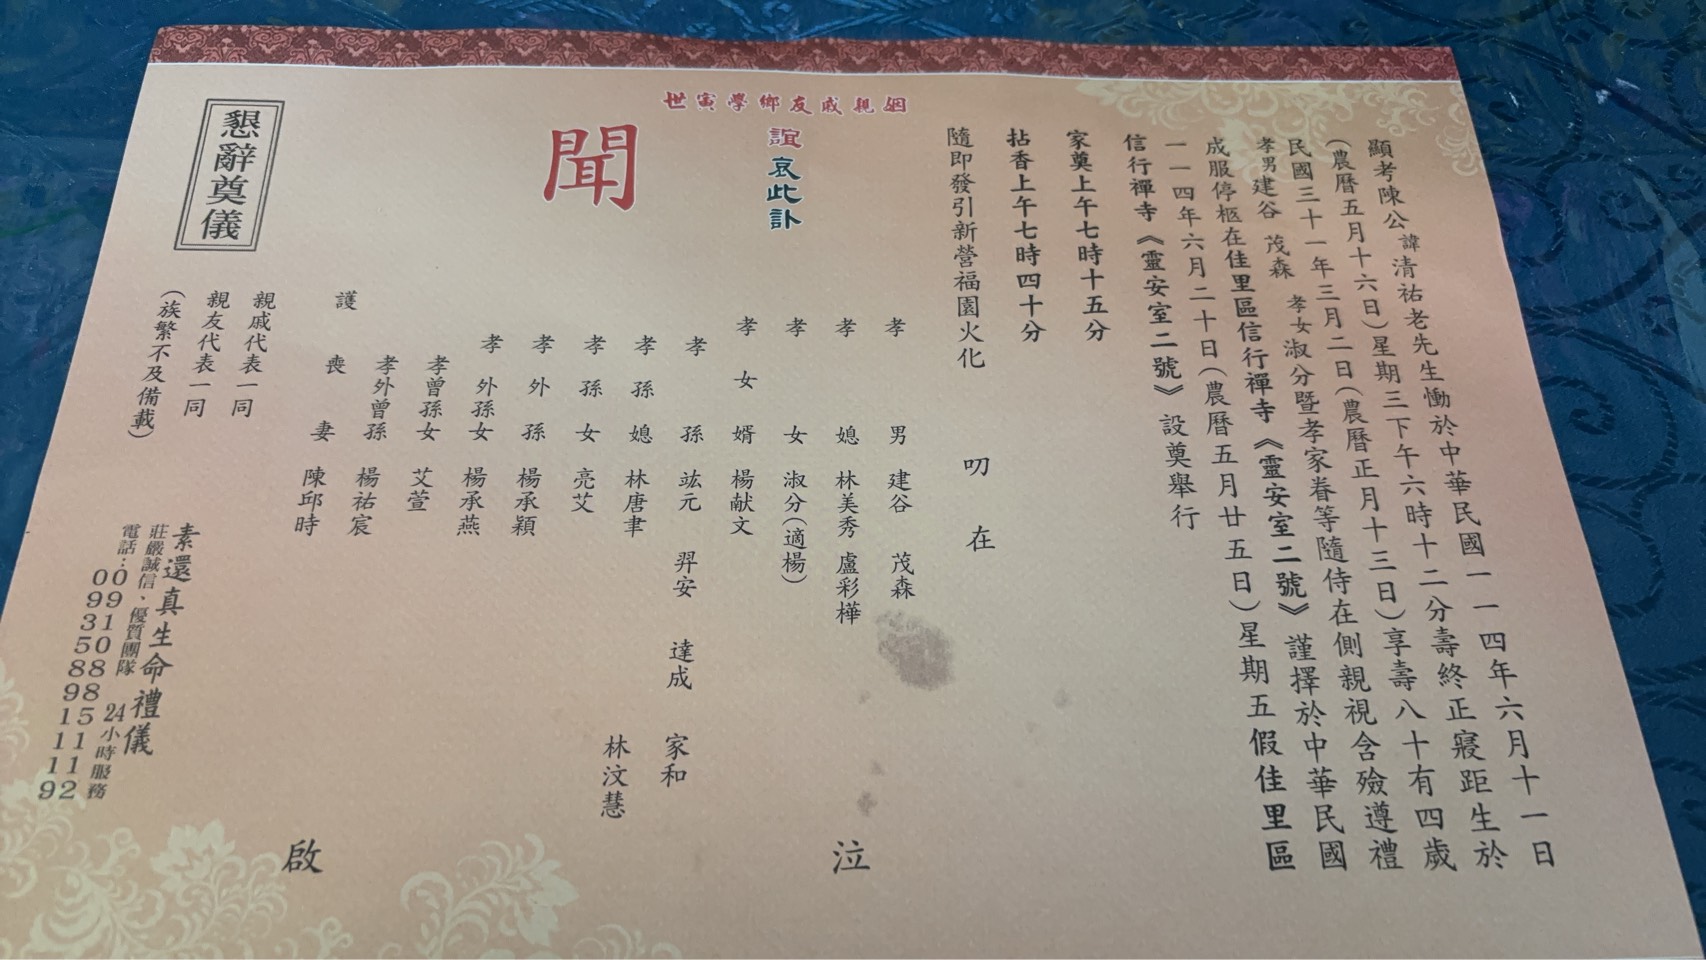 顯考陳公諱清祐老先生慟於中華民國一一四年六月十一日
(農曆五月十六日)星期三下午六時十二分壽終正寢距生於
民國三十一年三月二日(農曆正月十三日)享壽八十有四歲
孝男建谷 茂森 孝女淑分暨孝家眷等隨侍在側親視含殮遵禮
成服停柩在佳里區信行禪寺《靈安室二號》謹擇於中華民國
一一四年六月二十日(農曆五月廿五日)星期五假佳里區
信行禪寺《靈安室二號》設奠舉行
家奠上午七時十五分
拈香上午七時四十分
隨即發引新營福園火化
叨在
姻親戚友鄉學寅世
誼哀此訃
聞
孝男 建谷 茂森
孝媳 林美秀 盧彩樺
孝女 淑分(適楊)
孝女婿 楊献文
孝孫 竑元 羿安 達成 家和
孝孫媳 林唐聿 林汶慧
孝孫女 亮艾
孝外孫 楊承穎
孝外孫女 楊承燕
孝曾孫女 艾萱
孝外曾孫 楊祐宸
護喪妻 陳邱時
泣
啟
親戚代表一同
親友代表一同
(族繁不及備載)
懇辭奠儀
素還真生命禮儀
莊嚴誠信、優質團隊 24小時服務
電話:0910898151112
0935089511192